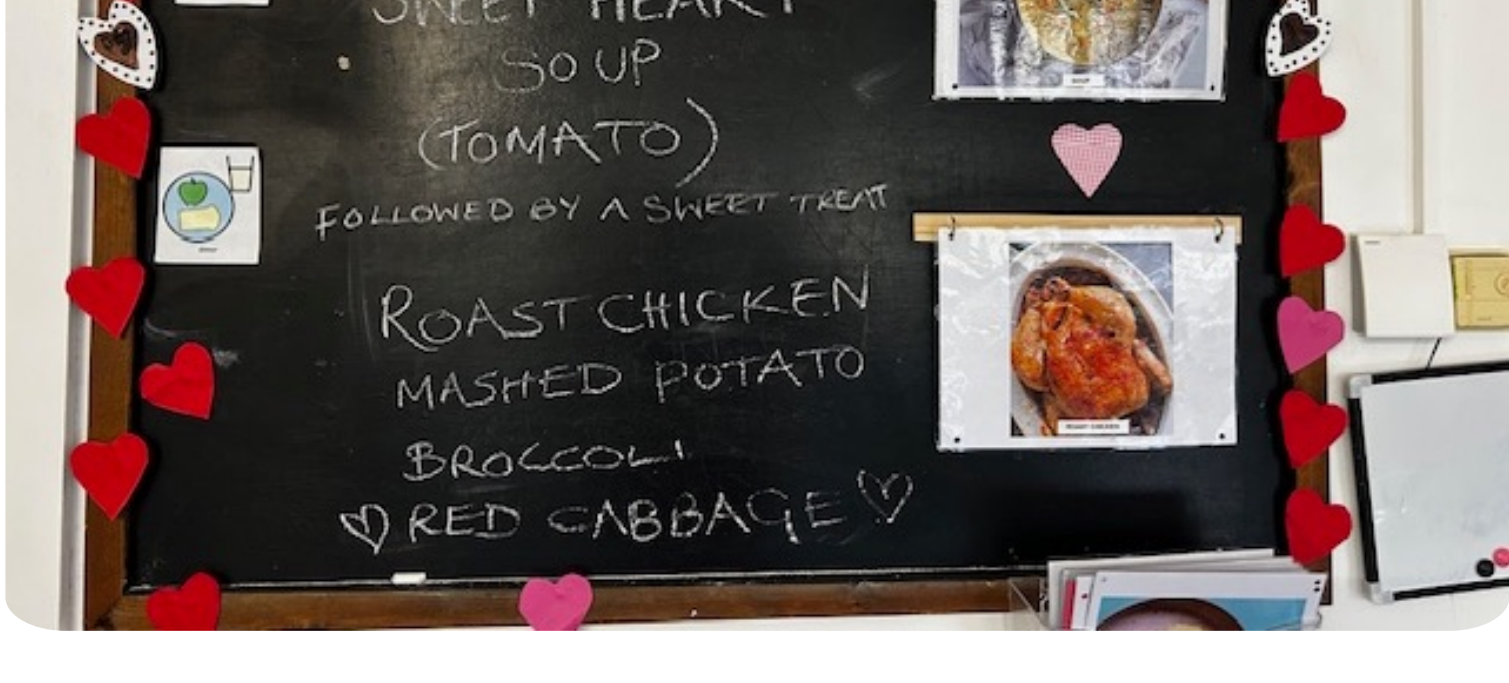 SWEET HEART
SOUP
(TOMATO)
FOLLOWED BY A SWEET TREAT
ROAST CHICKEN
MASHED POTATO
BROCCOLI
RED CABBAGE
SOUP
ROAST CHICKEN